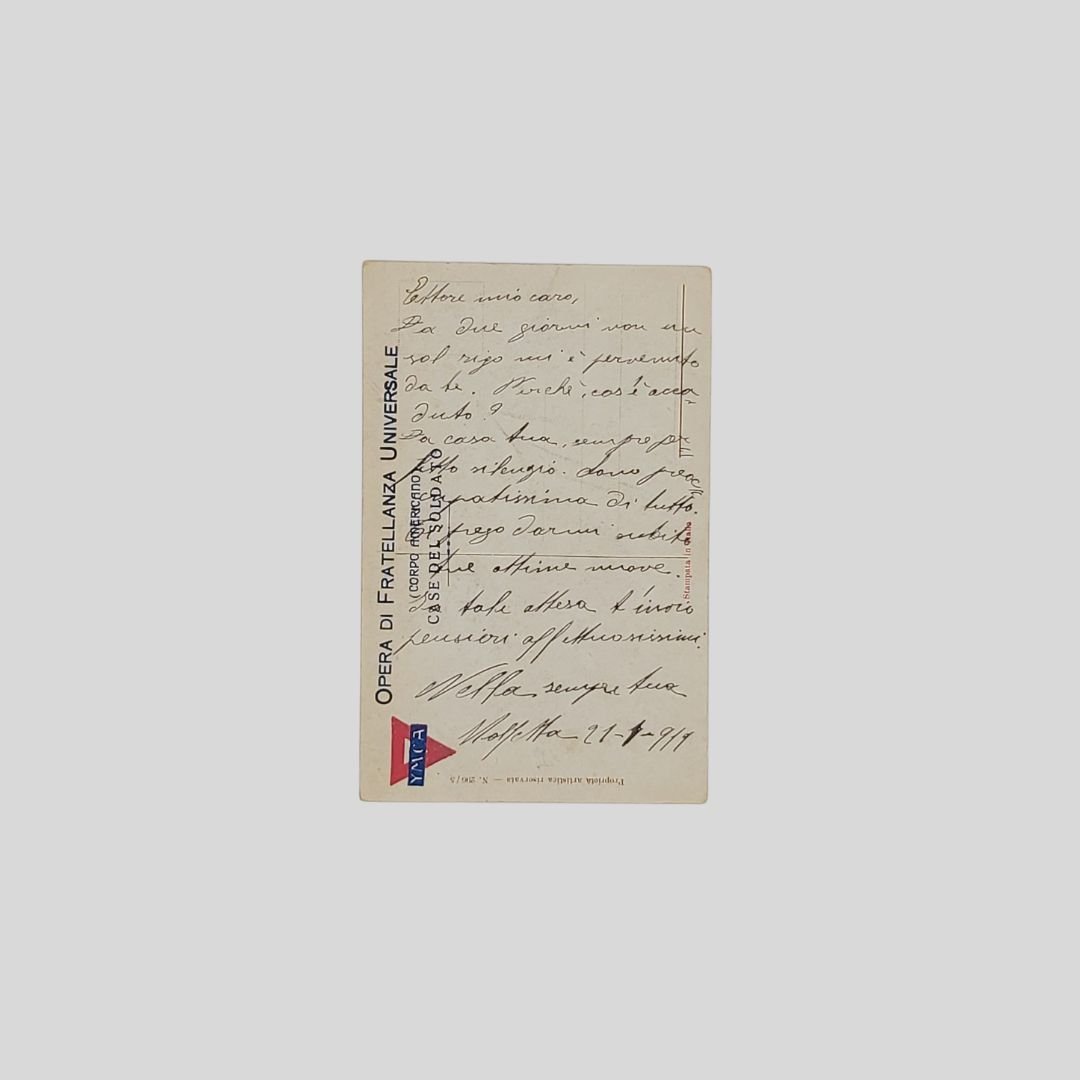 Ettore mio caro,
Da due giorni non un
sol rigo mi è pervenuto
da te. Perchè, cos'è acca-
duto?
Da casa tua, sempre per-
fetto silenzio. Sono preoc-
cupatissima di tutto.
Ti prego darmi subito
tue ottime nuove.
In tale attesa t'invio
pensieri affettuosissimi.
Nella sempre tua
Molfetta 21-1-919
OPERA DI FRATELLANZA UNIVERSALE
(CORPO AMERICANO)
CASE DEL SOLDATO
YMCA
Stampata in Italia
Proprietà artistica riservata — N. 296/5